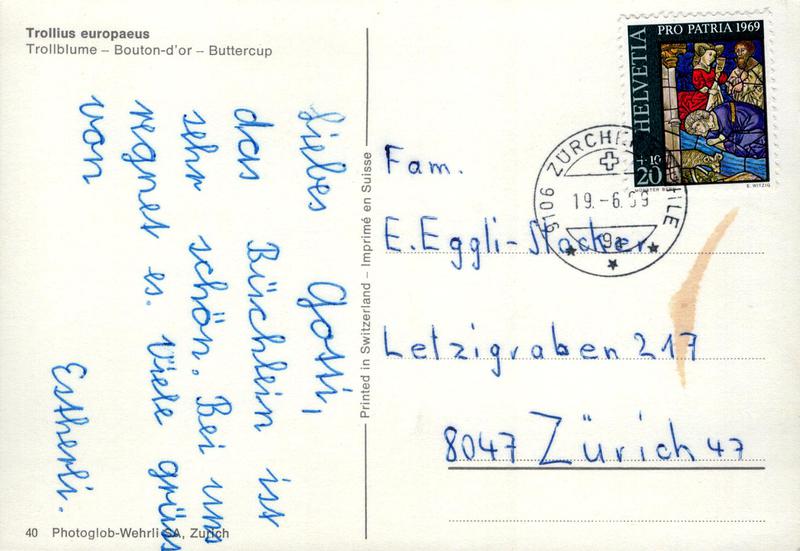 Trollius europaeus
Trollblume – Bouton-d'or – Buttercup
Liebes Gotti,
das Büschlein ist
sehr schön. Bei uns
regnet es. Viele grüss
von Estherli.
40 Photoglob-Wehrli SA, Zürich
Printed in Switzerland – Imprimé en Suisse
PRO PATRIA 1969
HELVETIA
+10
20
E. WITZIG
9106 ZÜRCHER
19.-6.69
Fam.
E. Eggli-Stocker
Letzigraben 217
8047 Zürich 47